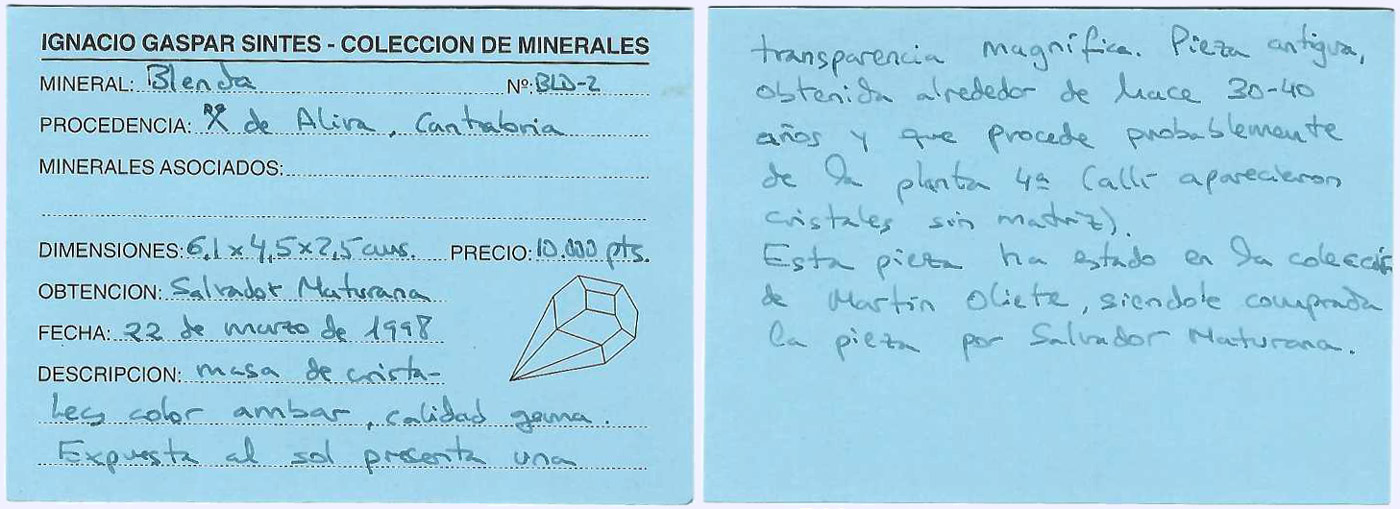 IGNACIO GASPAR SINTES - COLECCION DE MINERALES
MINERAL: Blenda Nº: BLD-2
PROCEDENCIA: ⚒ de Aliva, Cantabria
MINERALES ASOCIADOS:
DIMENSIONES: 6,1 x 4,5 x 2,5 cms. PRECIO: 10.000 pts.
OBTENCION: Salvador Maturana
FECHA: 22 de marzo de 1998
DESCRIPCION: masa de crista-
les color ambar, calidad gema.
Expuesta al sol presenta una
transparencia magnífica. Pieza antigua,
obtenida alrededor de hace 30-40
años y que procede probablemente
de la planta 4ª (allí aparecieron
cristales sin matriz).
Esta pieza ha estado en la colección
de Martín Oliete, siendole comprada
la pieza por Salvador Maturana.